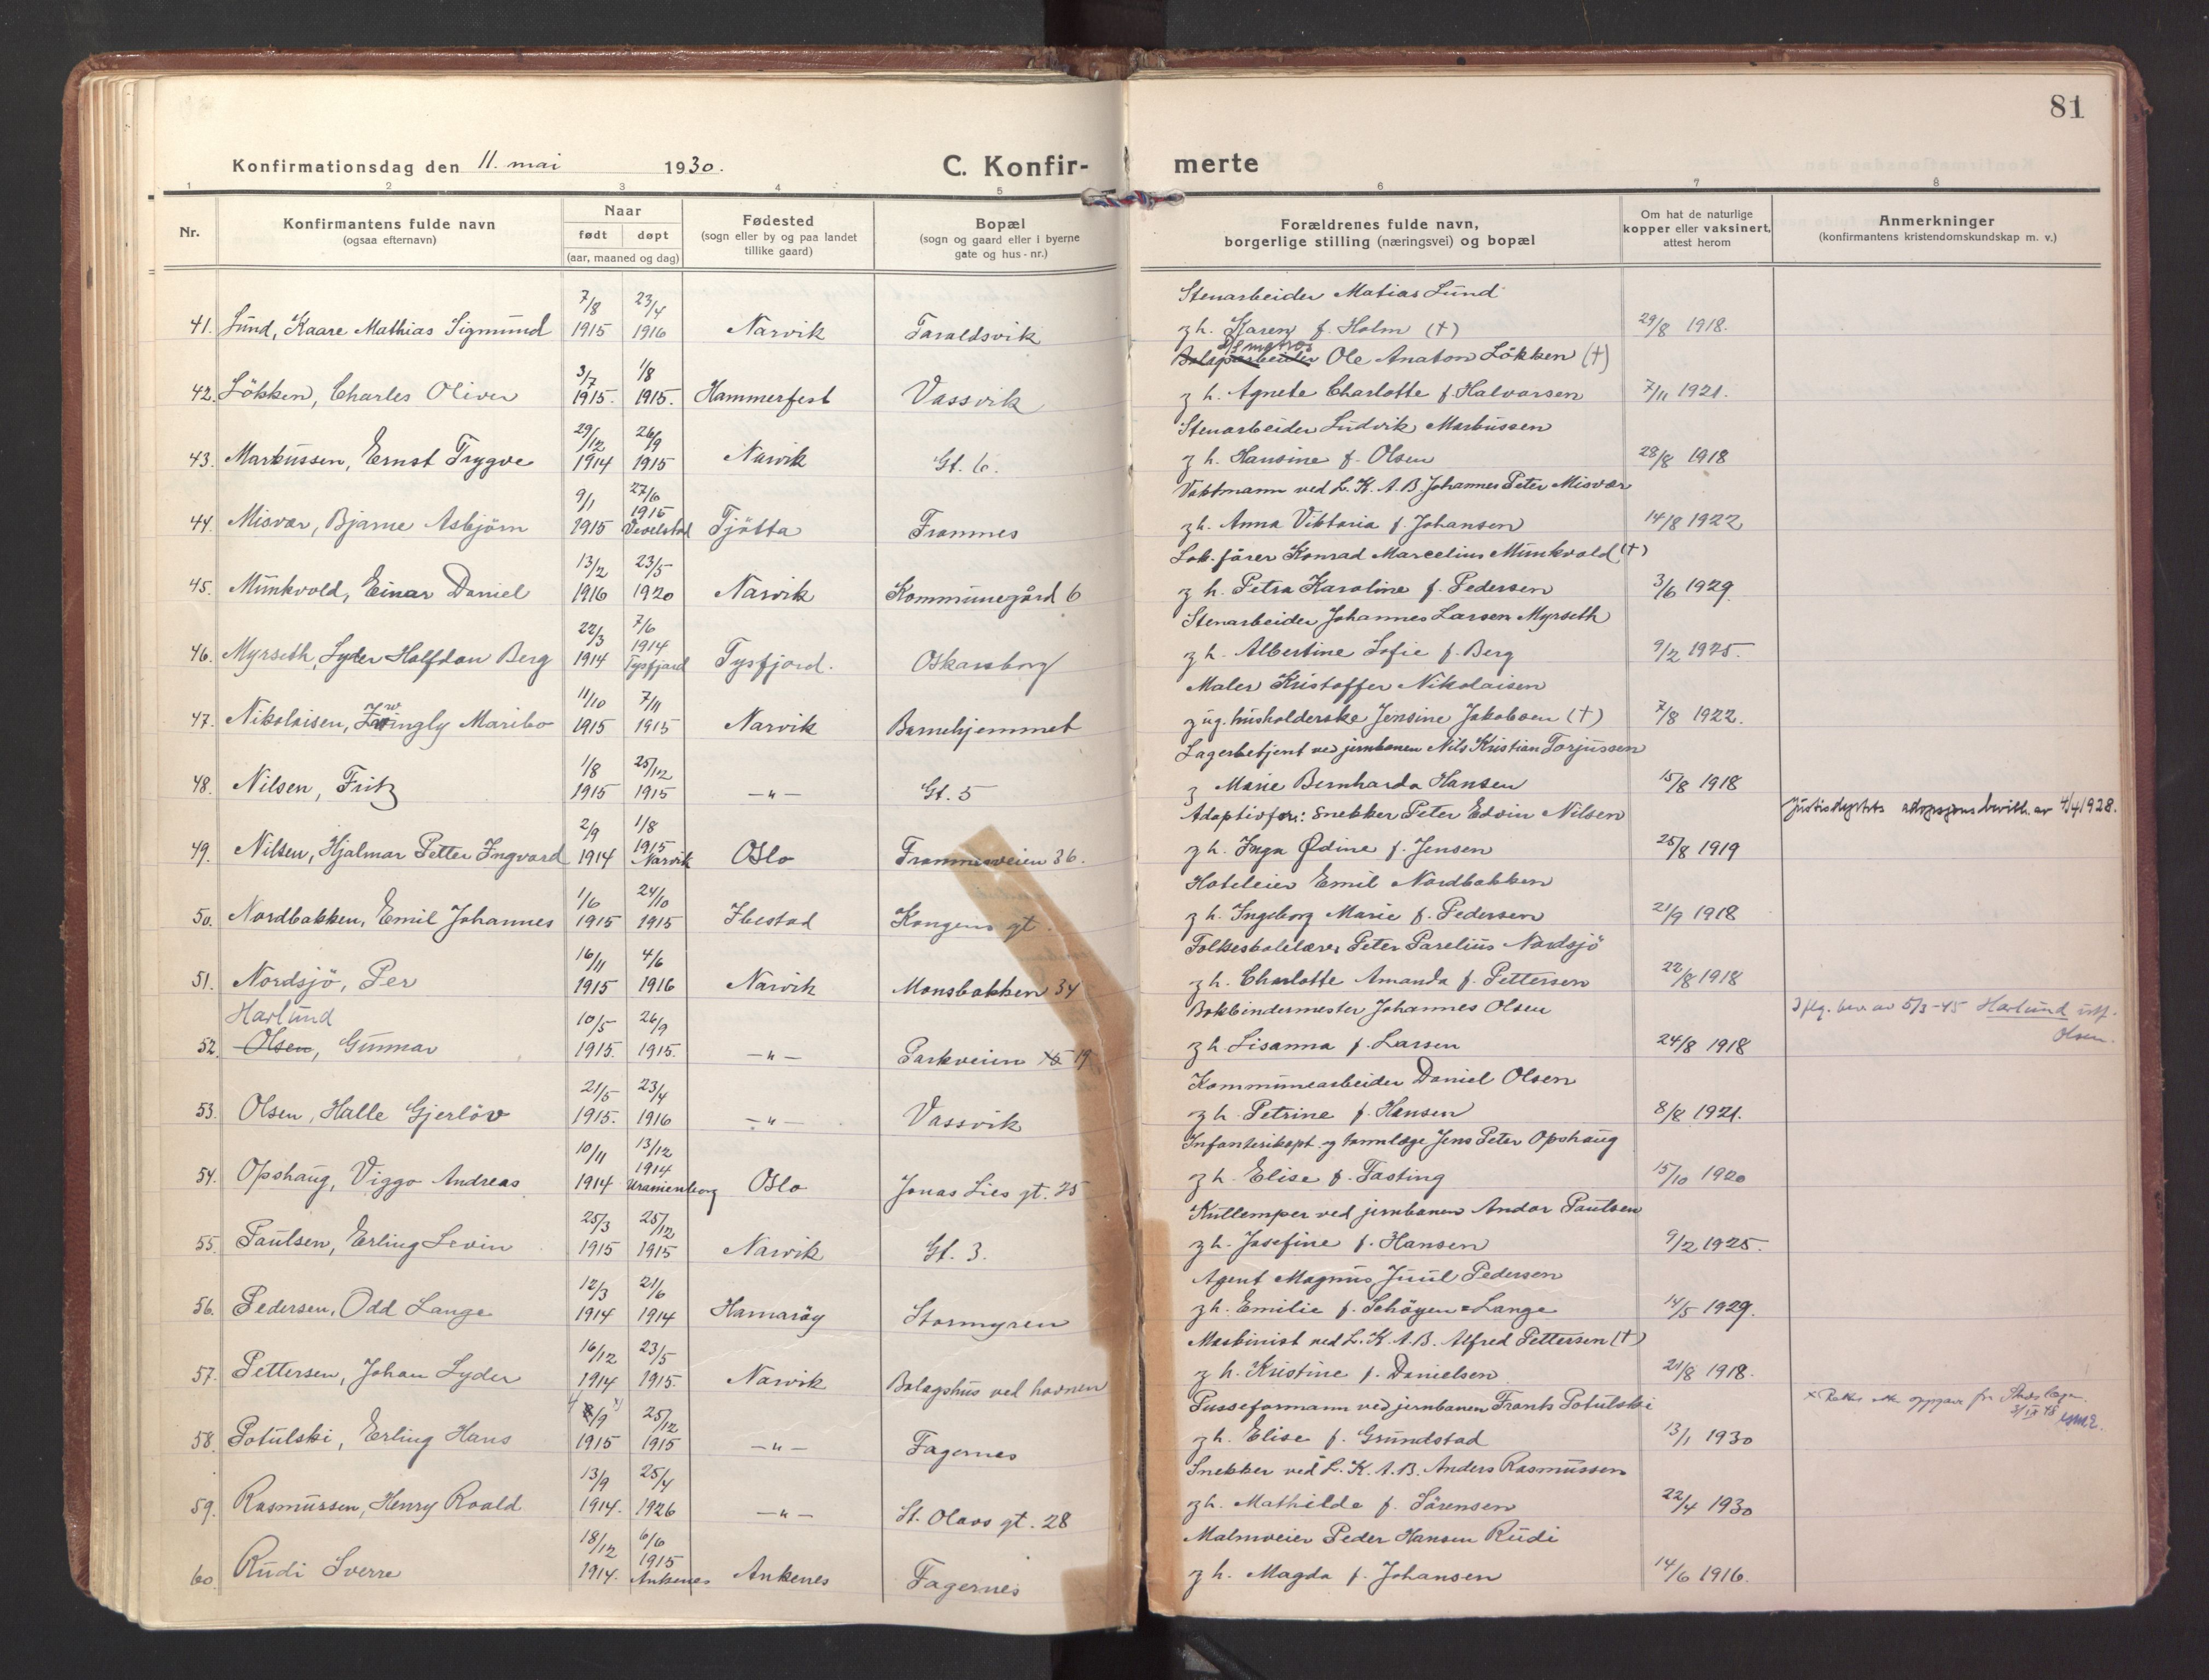 81
Konfirmationsdag den 11. mai 1930. C. Konfirmerte
1 2 3 4 5 6 7 8
Nr. Konfirmantens fulde navn (ogsaa efternavn) Naar født døpt (aar, maaned og dag) Fødested (sogn eller by og paa landet tillike gaard) Bopæl (sogn og gaard eller i byerne gate og hus-nr.) Forældrenes fulde navn, borgerlige stilling (næringsvei) og bopæl Om hat de naturlige kopper eller vaksinert, attest herom Anmerkninger (konfirmantens kristendomskundskap m. v.)
41. Lund, Kaare Mathias Sigmund 7/8 1915 23/4 1916 Narvik Taraldsvik Stenarbeider Matias Lund
g h. Karen f. Holm (+) 29/8 1918.
42. Lökken, Charles Oliver 3/7 1915. 1/8 1915. Hammerfest Vassvik Ole Anaton Lökken (+)
g h. Agnete Charlotte f. Halvorsen 7/11 1921.
43. Markussen, Ernst Trygve 29/12 1914 26/9 1915 Narvik Gt. 6. Stenarbeider Ludvik Markussen
g h. Hansine f. Olsen 28/8 1918
44. Misvær, Bjarne Asbjörn 9/1 1915 27/6 1915 Vevelstad Tjötta Framnes Vaktmann ved L. K. A. B Johannes Peter Misvær
g h. Anna Viktoria f. Johansen 14/8 1922
45. Munkvold, Einar Daniel 13/2 1916 23/5 1920 Narvik Kommunegård 6 Lok.förer Konrad Marcelius Munkvold (+)
g h. Petra Karoline f. Pedersen 3/6 1929.
46. Myrseth, Lyder Halfdan Berg 22/3 1914 7/6 1914 Tysfjord Tysfjord. Oskarsborg Stenarbeider Johannes Larsen Myrseth
g h. Albertine Sofie f. Berg 9/2 1925.
47. Nikolaisen, Zwingly Maribo 11/10 1915 7/11 1915 Narvik Barnehjemmet Maler Kristoffer Nikolaisen
g ug. husholderske Jensine Jakobsen (+) 7/8 1922.
48. Nilsen, Fritz 1/8 1915 25/12 1915 —"— Gt. 5 Lagerbetjent ved jernbanen Nils Kristian Torjussen
g Marie Bernharda Hansen 15/8 1918
49. Nilsen, Hjalmar Petter Ingvard 2/9 1914 1/8 1915 Narvik Oslo Framnesveien 36. Adoptivfor.: Snekker Peter Edvin Nilsen
g h. Inga Ødine f. Jensen 25/8 1919 adopsjonsbevilln. av 4/4 1928.
50. Nordbakken, Emil Johannes 1/6 1915 24/10 1915 Ibestad Kongens gt. Hoteleier Emil Nordbakken
g h. Ingeborg Marie f. Pedersen 21/9 1918
51. Nordsjö, Per 16/11 1915 4/6 1916 Narvik Monsbakken 34 Folkeskolelærer Peter Parelius Nordsjö
g h. Charlotte Amanda f. Pettersen 22/8 1918
Harlund
52. Olsen, Gunnar 10/5 1915. 26/9 1915. —"— Parkveien 19 Bokbindermester Johannes Olsen
g h Lisanna f. Larsen 24/8 1918 Iflg. bev. av 5/3-45 Harlund istf. Olsen.
53. Olsen, Halle Gjerlöv 21/5 1915. 23/4 1916 —"— Vassvik Kommunearbeider Daniel Olsen
g h. Petrine f. Hansen 8/8 1921.
54. Opshaug, Viggo Andreas 10/11 1914 13/12 1914 Uranienborg Oslo Jonas Lies gt. 25 Infanterikapt. g tannlæge Jens Peter Opshaug
g h. Elise f. Fasting 15/10 1920
55. Paulsen, Erling Levin 25/3 1915 25/12 1915 Narvik Gt. 3. Kullemper ved jernbanen Andor Paulsen
g h. Josefine f. Hansen 9/2 1925.
56. Pedersen, Odd Lange 12/3 1914 21/6 1914 Hamaröy Stormyren Agent Magnus Juul Pedersen
g h. Emilie f. Schöyen=Lange 14/5 1929.
57. Pettersen, Johan Lyder 16/12 1914 23/5 1915. Narvik Bolagshus ved havnen Maskinist ved L. K. A. B. Alfred Pettersen (+)
g h. Kristine f. Danielsen 21/8 1918.
58. Potulski, Erling Hans 4/9 x) 1915 25/12 1915 —"— Fagernes Pusseformann ved jernbanen Frank Potulski
g h. Elise f. Grundstad 13/1 1930 x Rettet etter oppgave fra
59. Rasmussen, Henry Roald 13/9 1914. 25/4 1926 —"— St. Olavs gt. 28 Snekker ved L. K. A. B. Anders Rasmussen
g h. Mathilde f. Sörensen 22/4 1930
60. Rudi Sverre 18/12 1914. 6/6 1915 Ankenes Ankenes Fagernes Malmveier Peder Hansen Rudi
g h. Magda f. Johansen 14/6 1916.